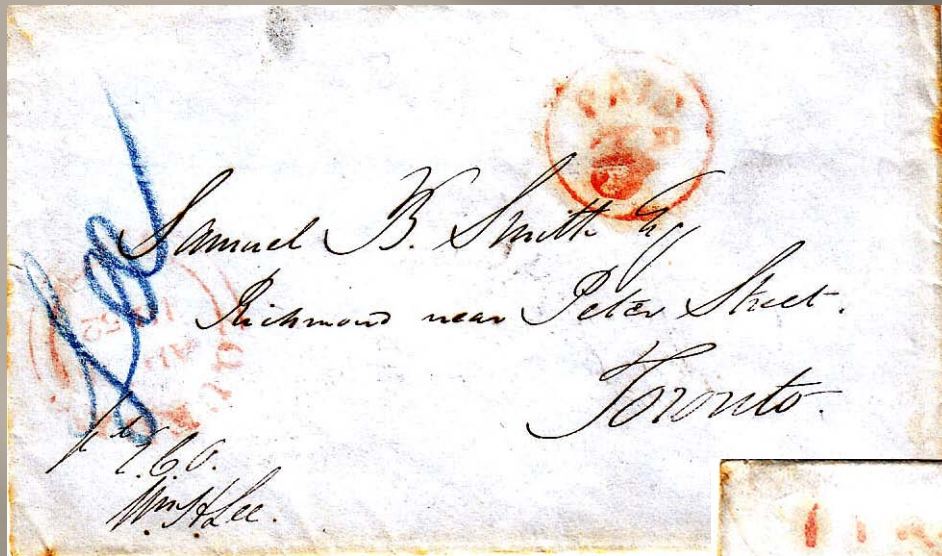 Samuel B. Smith Esq
Richmond near Peter Street.
Toronto.
Lee
Wm H Lee.